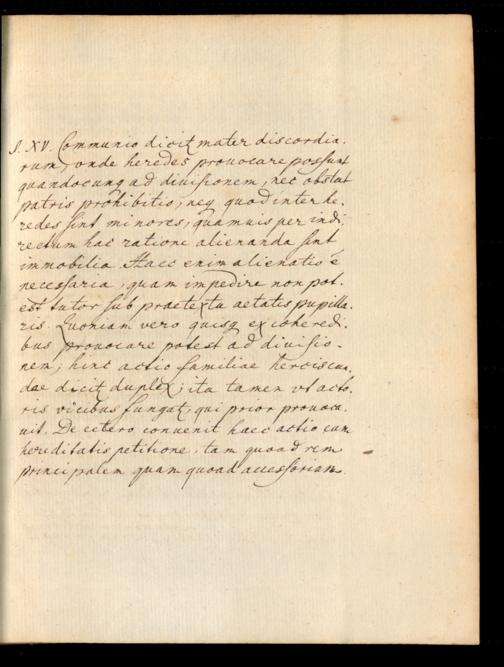 §. XV. Communio dicit mater discordia-
rum, unde heredes provocare possunt
quandocunq ad divisionem, nec obstat
patris prohibitio, neq quod inter he-
redes sint minores, quamvis per indi-
rectum hac ratione alienanda sint
immobilia. Haec enim alienatio ē
necessaria, quam impedire non pot-
est tutor sub praetextu aetatis pupilla-
ris. Quoniam vero quisq ex coheredi-
bus provocare potest ad divisio-
nem; hinc actio familiae herciscun-
dae dicit duplex; ita tamen vt acto-
ris vicibus fungat, qui prior provoca-
vit. De cetero convenit haec actio cum
hereditatis petitione, tam quoad rem
principalem quam quoad accessoriam.